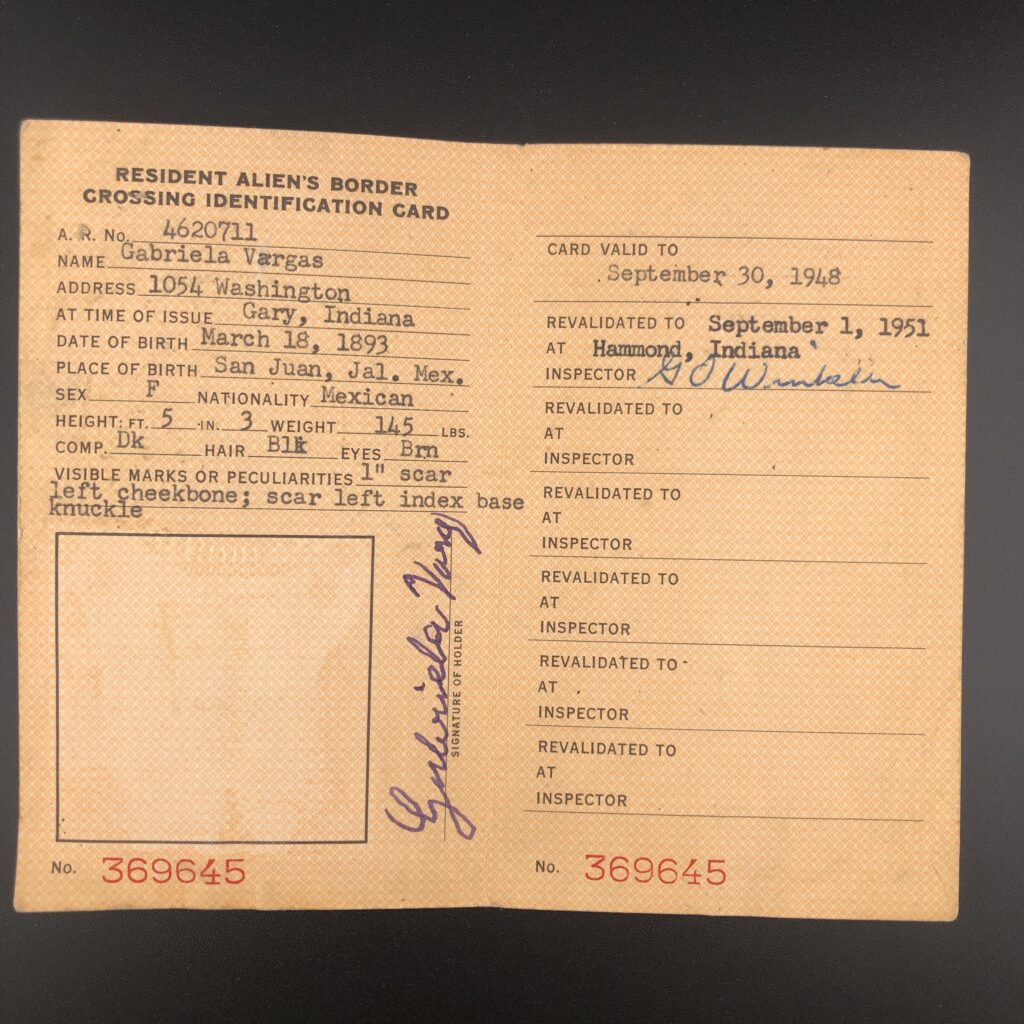 RESIDENT ALIEN'S BORDER
CROSSING IDENTIFICATION CARD
A. R. No. 4620711
NAME Gabriela Vargas
ADDRESS 1054 Washington
AT TIME OF ISSUE Gary, Indiana
DATE OF BIRTH March 18, 1893
PLACE OF BIRTH San Juan, Jal. Mex.
SEX F NATIONALITY Mexican
HEIGHT: FT. 5 IN. 3 WEIGHT 145 LBS.
COMP. Dk HAIR Blk EYES Brn
VISIBLE MARKS OR PECULIARITIES 1" scar
left cheekbone; scar left index base
knuckle
Gabriela Varg
SIGNATURE OF HOLDER
No. 369645
CARD VALID TO
September 30, 1948
REVALIDATED TO September 1, 1951
AT Hammond, Indiana
INSPECTOR G O Winkler
REVALIDATED TO
AT
INSPECTOR
REVALIDATED TO
AT
INSPECTOR
REVALIDATED TO
AT
INSPECTOR
REVALIDATED TO
AT
INSPECTOR
REVALIDATED TO
AT
INSPECTOR
No. 369645